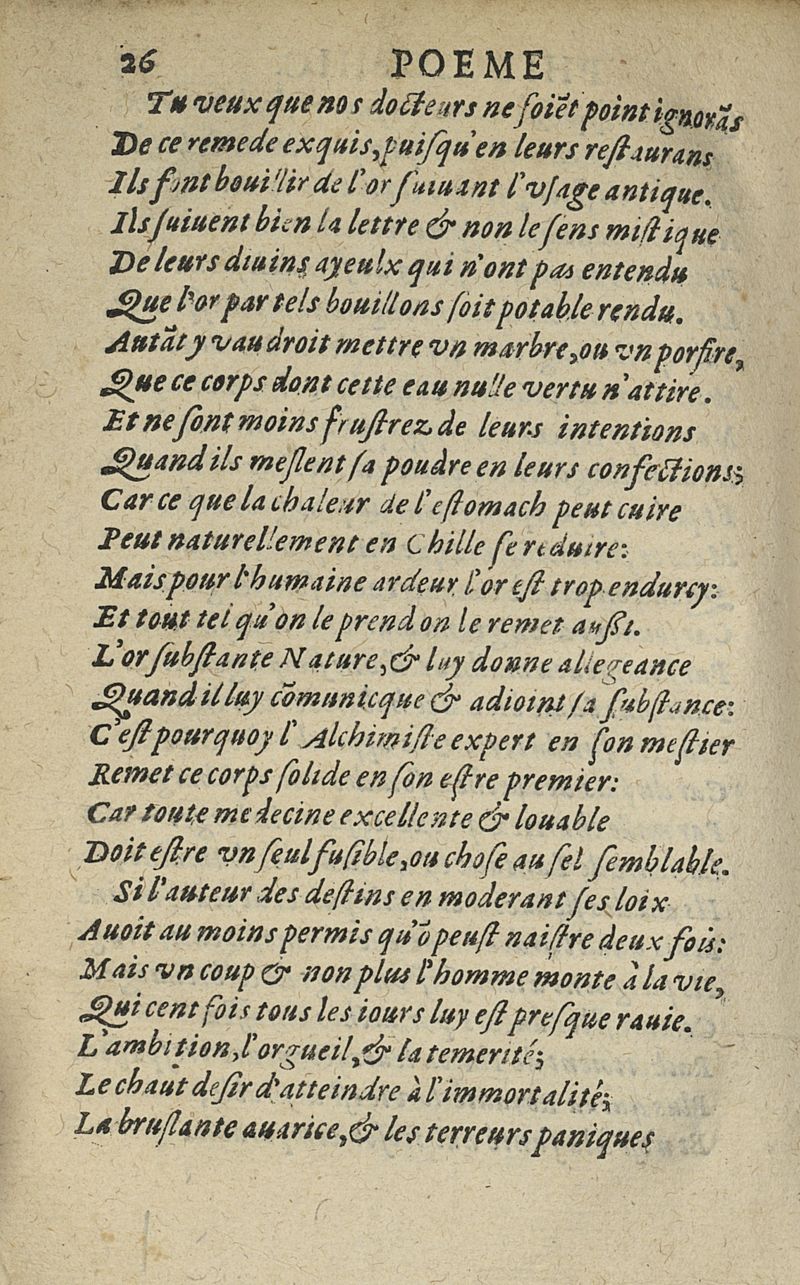 26 POEME
Tu veux que nos docteurs ne ſoiēt point ignorãs
De ce remede exquis, puiſqu'en leurs reſtaurans
Ils font bouillir de l'or ſuiuant l'vſage antique.
Ils ſuiuent bien la lettre & non le ſens miſtique
De leurs diuins ayeulx qui n'ont pas entendu
Que l'or par tels bouillons ſoit potable rendu.
Autãt y vaudroit mettre vn marbre, ou vn porfire,
Que ce corps dont cette eau nulle vertu n'attire.
Et ne ſont moins fruſtrez de leurs intentions
Quand ils meſlent ſa poudre en leurs confections;
Car ce que la chaleur de l'eſtomach peut cuire
Peut naturellement en Chille ſe reduire:
Mais pour l'humaine ardeur l'or eſt trop endurcy:
Et tout tel qu'on le prend on le remet auſſi.
L'or ſubſtante Nature, & luy donne allegeance
Quand il luy cõmunicque & adioint ſa ſubſtance:
C'eſt pourquoy l'Alchimiſte expert en ſon meſtier
Remet ce corps ſolide en ſon eſtre premier:
Car toute medecine excellente & louable
Doit eſtre vn ſeul fuſible, ou choſe au ſel ſemblable.
Si l'auteur des deſtins en moderant ſes loix
Auoit au moins permis qu'õ peuſt naiſtre deux fois:
Mais vn coup & non plus l'homme monte à la vie,
Qui cent fois tous les iours luy eſt preſque rauie.
L'ambition, l'orgueil, & la temerité;
Le chaut deſir d'atteindre à l'immortalité;
La bruſlante auarice, & les terreurs paniques